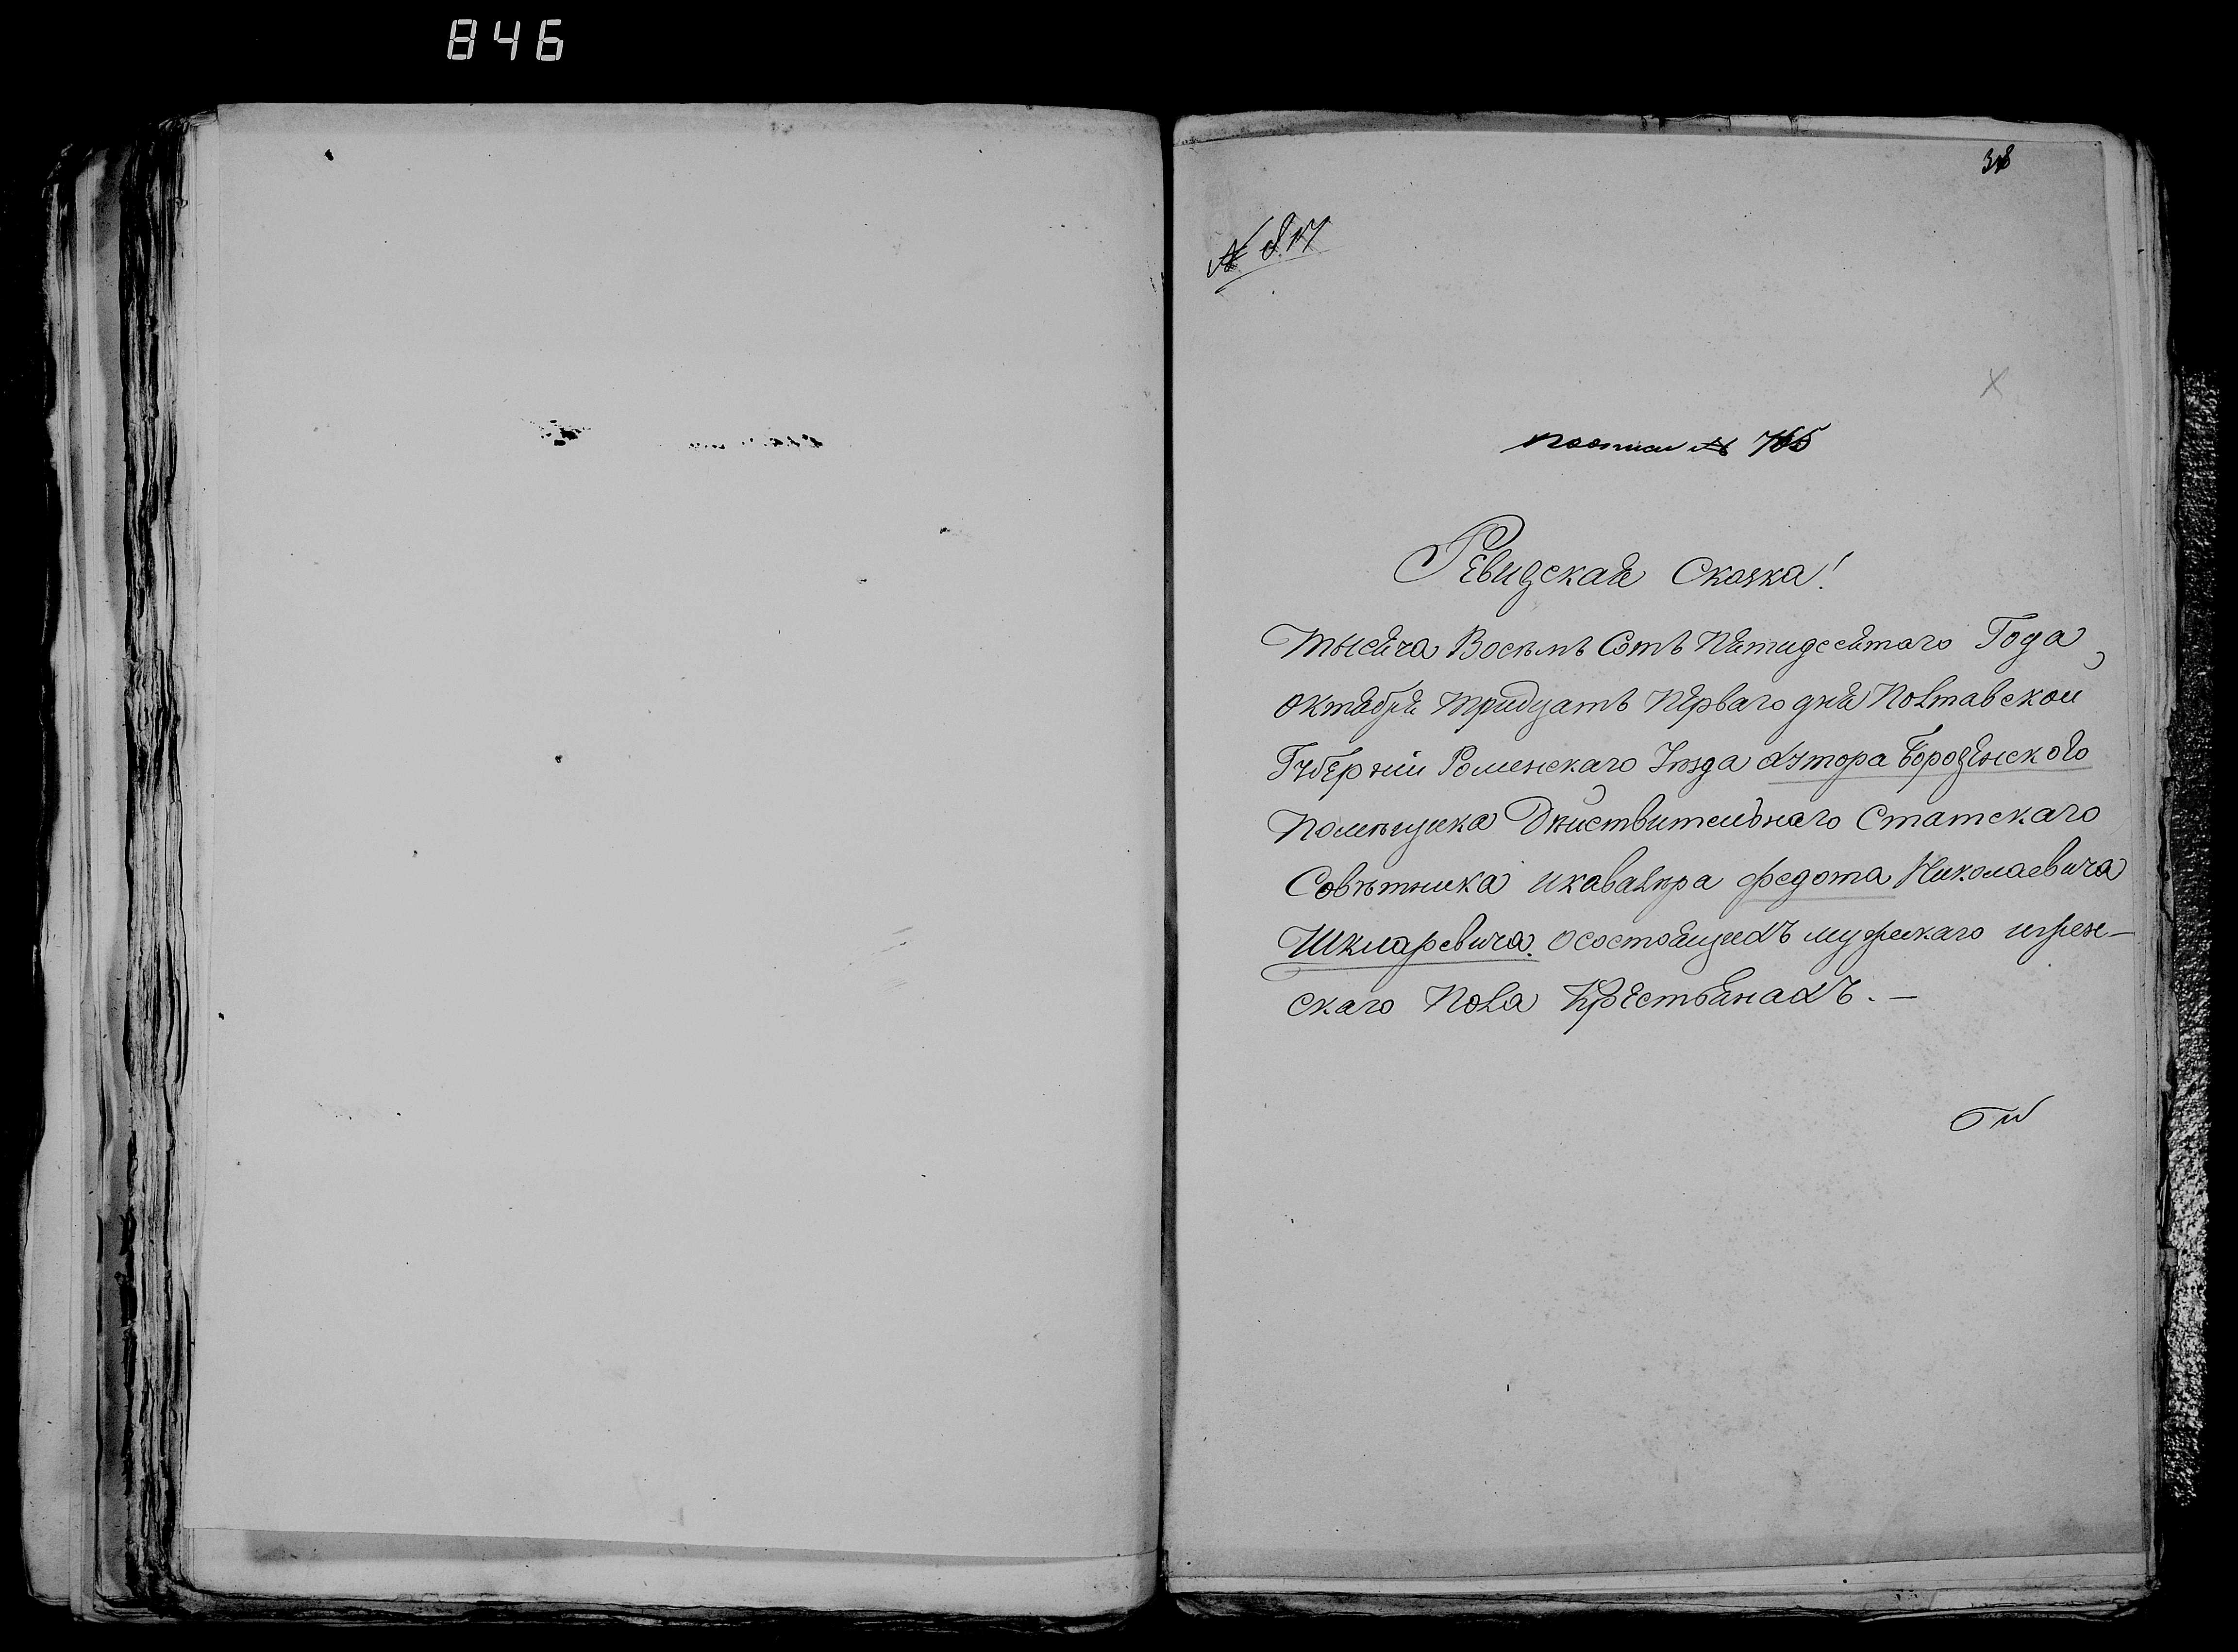 846
№ 817
по описи № 765
Ревизская Сказка!
Тысяча Восемь Сотъ Пятидесятаго Года
Октября тридцать Перваго дня Полтавской
Губерніи Роменскаго Уѣзда Хутора Борозенского
Помѣщика Дѣйствительнаго Статскаго
Совѣтника и кавалера Федота Николаевича
Шкларевича. о состоящихъ мужскаго и жен–
скаго Пола Крестьянахъ. –